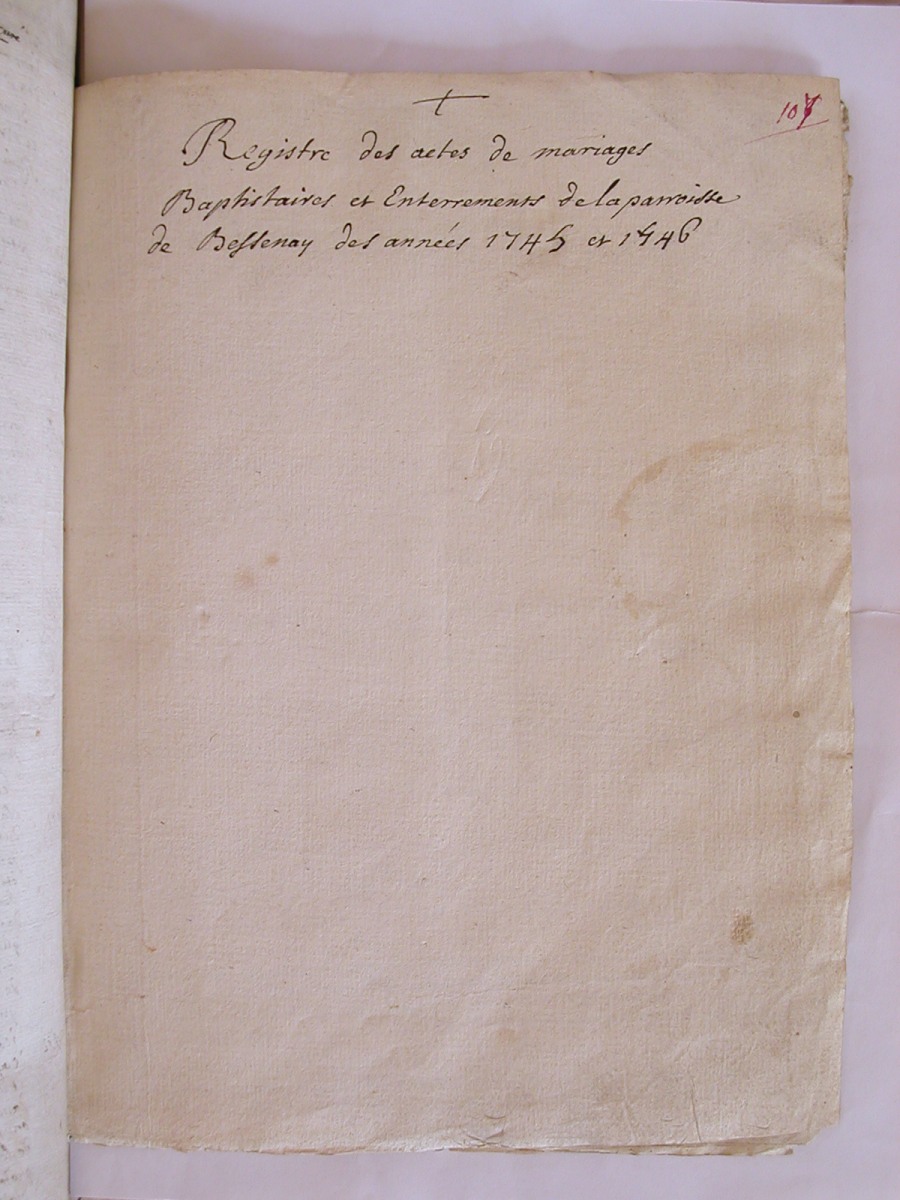 107
Registre des actes de mariages
Baptistaires et Enterrements de la parroisse
de Bessenay des années 1745 et 1746